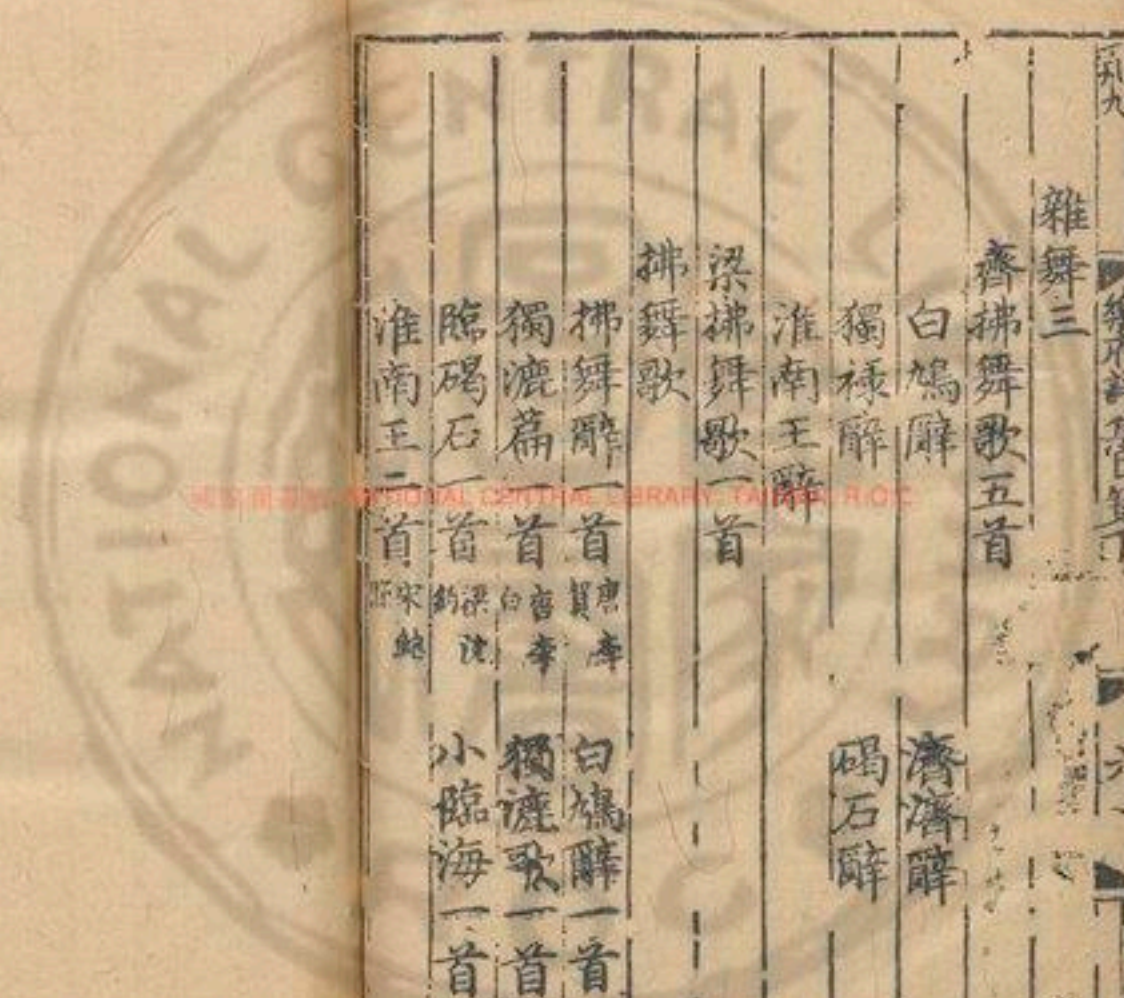 雜舞三
齊拂舞歌五首
白鳩辭 濟濟辭
獨祿辭 碣石辭
淮南王辭
梁拂舞歌一首
拂舞歌
拂舞辭一首 唐李賀 白鳩辭一首
獨漉篇一首 唐李白 獨漉歌一首
臨碣石一首 梁沈約 小臨海一首
淮南王二首 宋鮑
NATIONAL CENTRAL LIBRARY, TAIWAN, R.O.C.